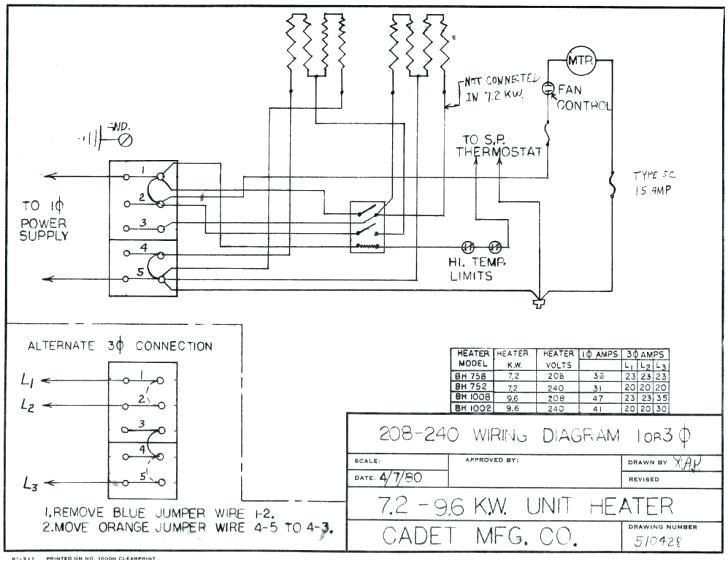 NOT CONNECTED
IN 7.2 K.W.
MTR.
FAN
CONTROL
GND.
TO S.P.
THERMOSTAT
TYPE SC
15 AMP
1
2
3
4
5
TO 1ϕ
POWER
SUPPLY
HI. TEMP.
LIMITS
ALTERNATE 3ϕ CONNECTION
L1
L2
L3
1
2
3
4
5
1. REMOVE BLUE JUMPER WIRE 1-2.
2. MOVE ORANGE JUMPER WIRE 4-5 TO 4-3.
HEATER MODEL HEATER K.W. HEATER VOLTS 1ϕ AMPS 3ϕ AMPS
L1 L2 L3
BH 758 7.2 208 36 23 23 23
BH 752 7.2 240 31 20 20 20
BH 1008 9.6 208 47 23 23 35
BH 1002 9.6 240 41 20 20 30
208-240 WIRING DIAGRAM 1 OR 3ϕ
SCALE:
APPROVED BY:
DRAWN BY
DATE: 4/7/80
REVISED
7.2 - 9.6 K.W. UNIT HEATER
CADET MFG. CO.
DRAWING NUMBER
510428
PRINTED ON NO. 1000H CLEARPRINT